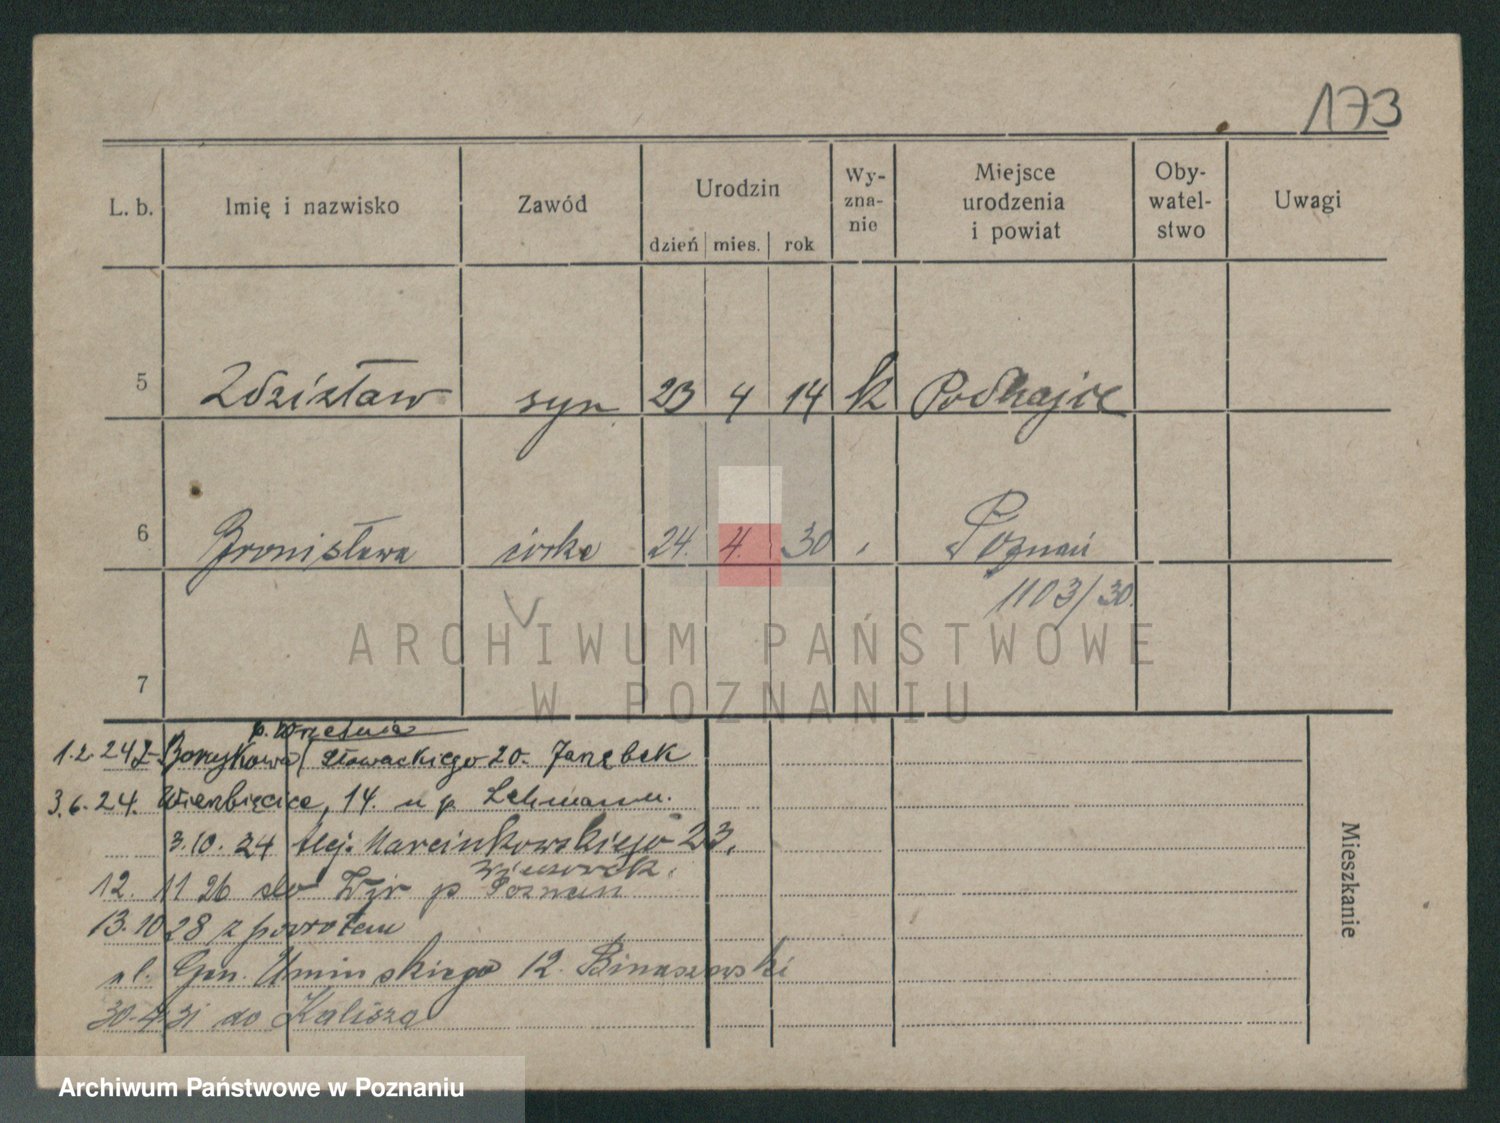 173
L. b. Imię i nazwisko Zawód Urodzin dzień mies. rok Wy-zna-nie Miejsce urodzenia i powiat Oby-watel-stwo Uwagi
5 Zdzisław syn 23 4 14 k Podhajce
6 Bronisława córka 24. 4. 30
Poznań
1103/30.
ARCHIWUM PAŃSTWOWE
W POZNANIU
7
p. Września
1.2.24 Słowackiego 20.
3.6.24. Wierzbięcice, 14. u p. Lehmann.
3.10.24 Alej. Marcinkowskiego 23.
12. 11 26 do p Poznań
13.10 28 z powrotem
ul. Gen. Umińskiego 12. Binaszewski
30.4.31 do Kalisza
Mieszkanie
Archiwum Państwowe w Poznaniu